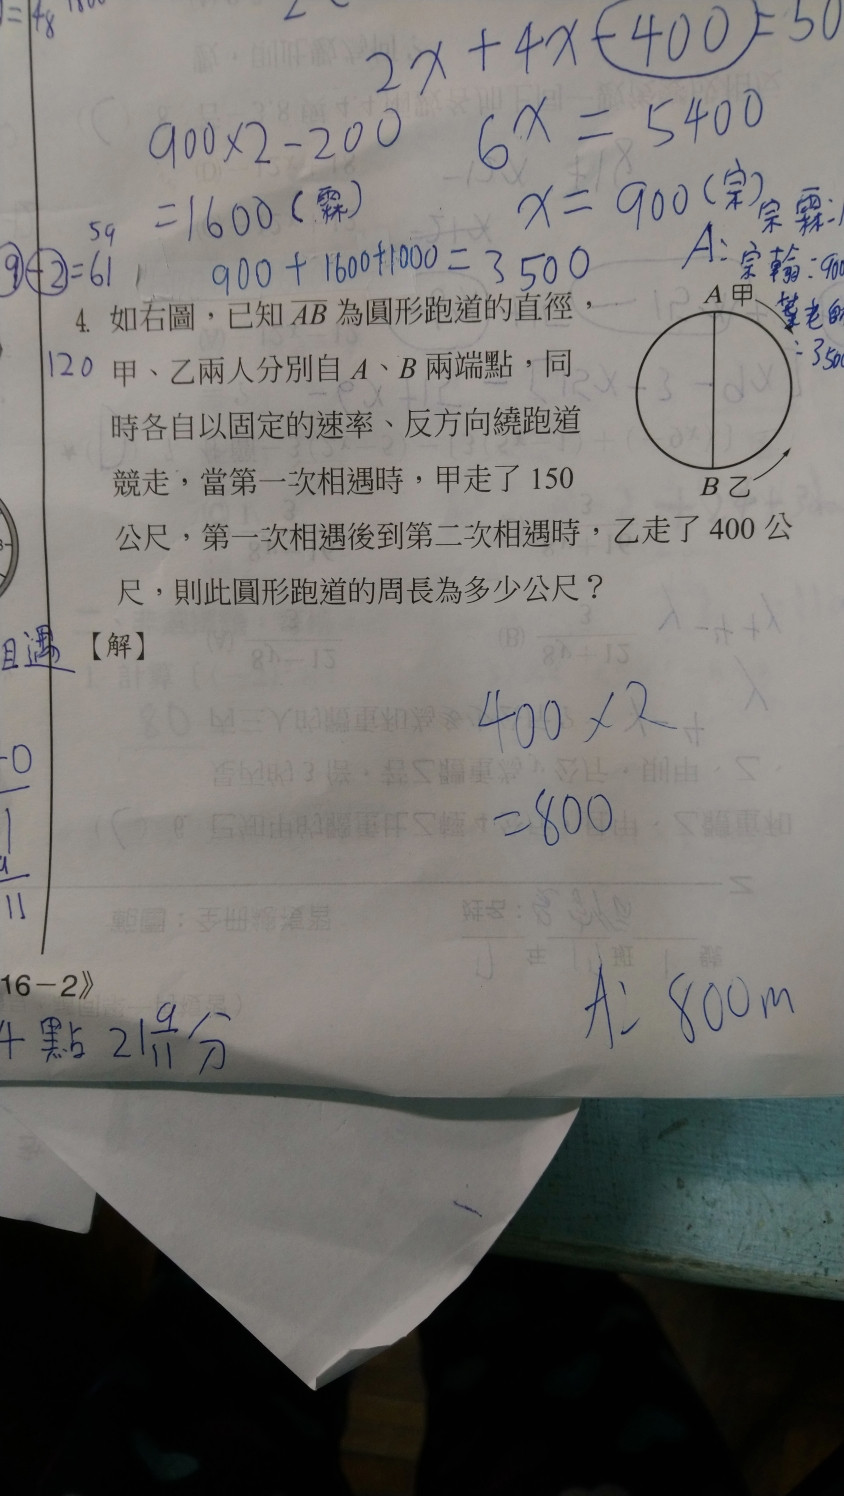 2x + 4x - 400 = 50
900×2-200
6x = 5400
=1600(霖)
x = 900(宗)
宗霖:1
59
9-2=61
900+1600+1000=3500
A: 宗翰:900
董老師
:3500
4. 如右圖,已知 AB 為圓形跑道的直徑,
A 甲
120
甲、乙兩人分別自 A、B 兩端點,同
時各自以固定的速率、反方向繞跑道
競走,當第一次相遇時,甲走了 150
B 乙
公尺,第一次相遇後到第二次相遇時,乙走了 400 公
尺,則此圓形跑道的周長為多少公尺?
相遇
【解】
400×2
=800
11
16-2》
A: 800m
4點 21 9/11 分